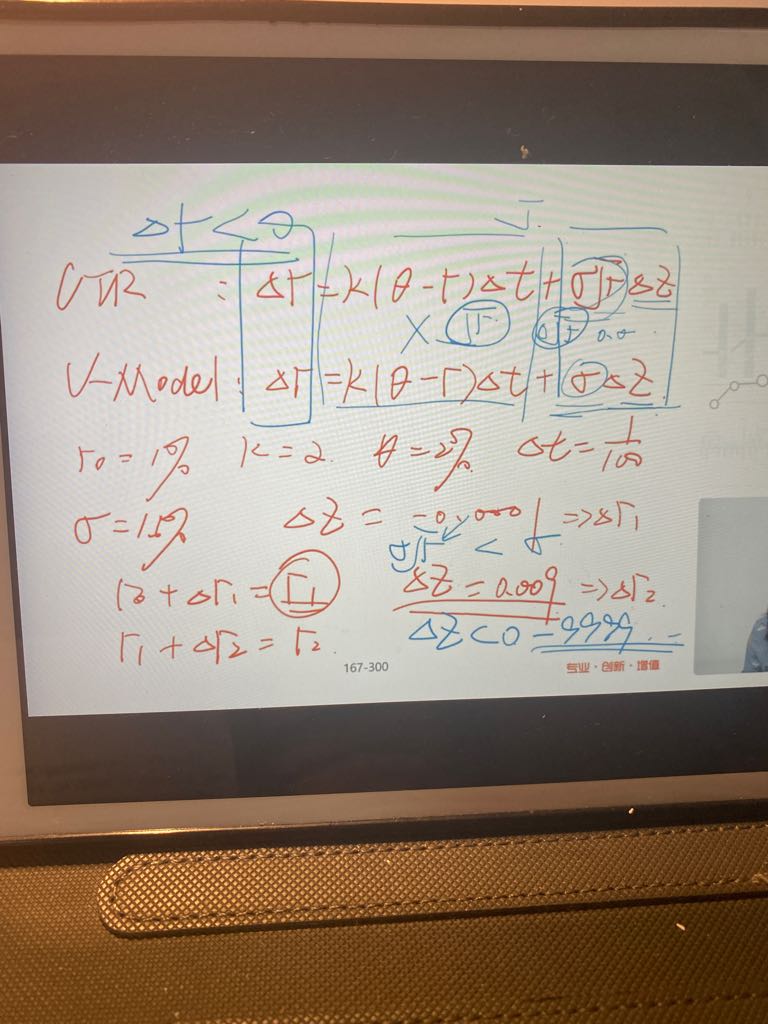 Δr < 0
CIR : Δr = k(θ-r)Δt + σ√r ΔZ
× √r σ√r 0.0
V-Model: Δr = k(θ-r)Δt + σΔZ
r₀ = 1% k = 2 θ = 2% Δt = 1/100
σ = 15% ΔZ = -0.0001 ⇒ Δr₁
σ√r < σ
r₀ + Δr₁ = r₁ ΔZ = 0.009 ⇒ Δr₂
r₁ + Δr₂ = r₂ ΔZ < 0 -9999
167-300 专业·创新·增值